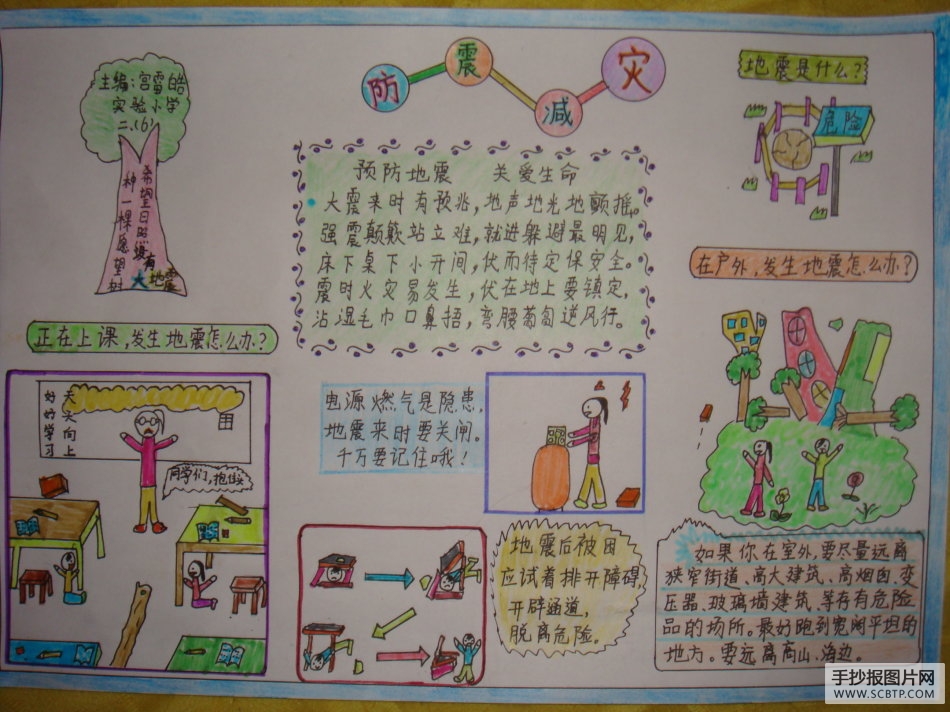 防震减灾
主编:宫雷皓
实验小学
二.(6)
种一棵愿望树
希望日照没有大地震
预防地震 关爱生命
大震来时有预兆,地声地光地颤摇。
强震颠簸站立难,就进躲避最明见,
床下桌下小开间,伏而待定保安全。
震时火灾易发生,伏在地上要镇定,
沾湿毛巾口鼻捂,弯腰匍匐逆风行。
地震是什么?
危险
在户外,发生地震怎么办?
正在上课,发生地震怎么办?
好好学习
天天向上
同学们,抱住头
电源燃气是隐患,
地震来时要关闸。
千万要记住哦!
地震后被困
应试着排开障碍,
开辟通道,
脱离危险。
如果你在室外,要尽量远离
狭窄街道、高大建筑、高烟囱、变
压器、玻璃墙建筑、等存有危险
品的场所。最好跑到宽阔平坦的
地方。要远离高山、海边。
手抄报图片网
WWW.SCBTP.COM